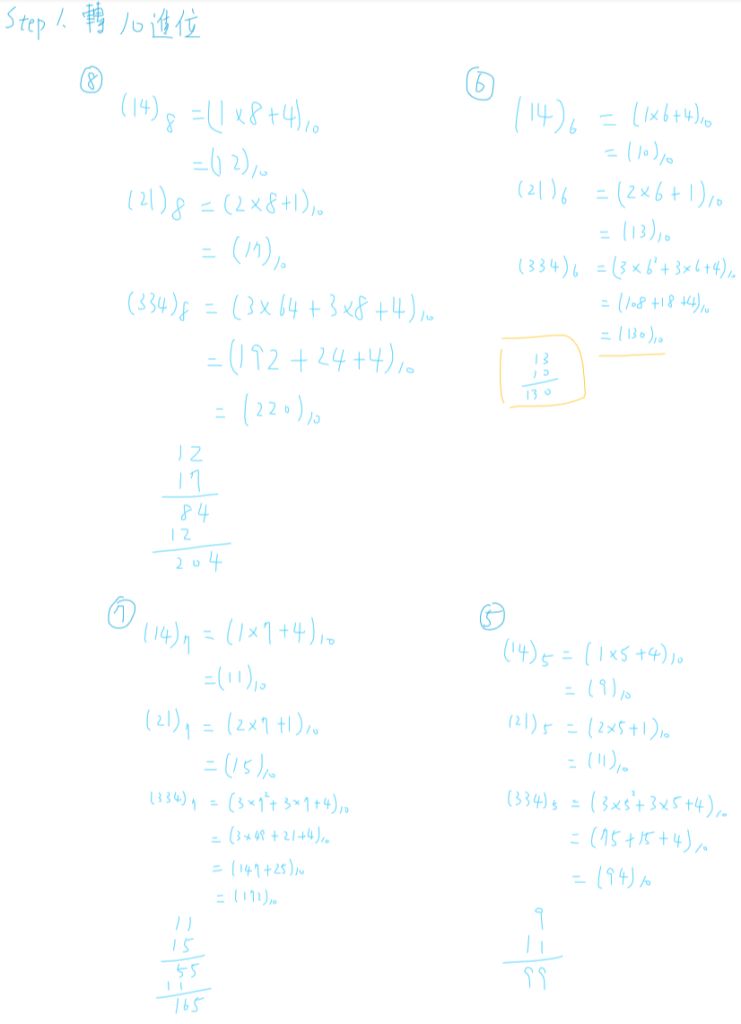 Step 1. 轉 10 進位
⑧
(14)8 = (1×8+4)10
= (12)10
(21)8 = (2×8+1)10
= (17)10
(334)8 = (3×64+3×8+4)10
= (192+24+4)10
= (220)10
12
17
84
12
204
⑥
(14)6 = (1×6+4)10
= (10)10
(21)6 = (2×6+1)10
= (13)10
(334)6 = (3×6²+3×6+4)10
= (108+18+4)10
= (130)10
13
10
130
⑦
(14)7 = (1×7+4)10
= (11)10
(21)7 = (2×7+1)10
= (15)10
(334)7 = (3×7²+3×7+4)10
= (3×49+21+4)10
= (147+25)10
= (172)10
11
15
55
11
165
⑤
(14)5 = (1×5+4)10
= (9)10
(21)5 = (2×5+1)10
= (11)10
(334)5 = (3×5²+3×5+4)10
= (75+15+4)10
= (94)10
9
11
99